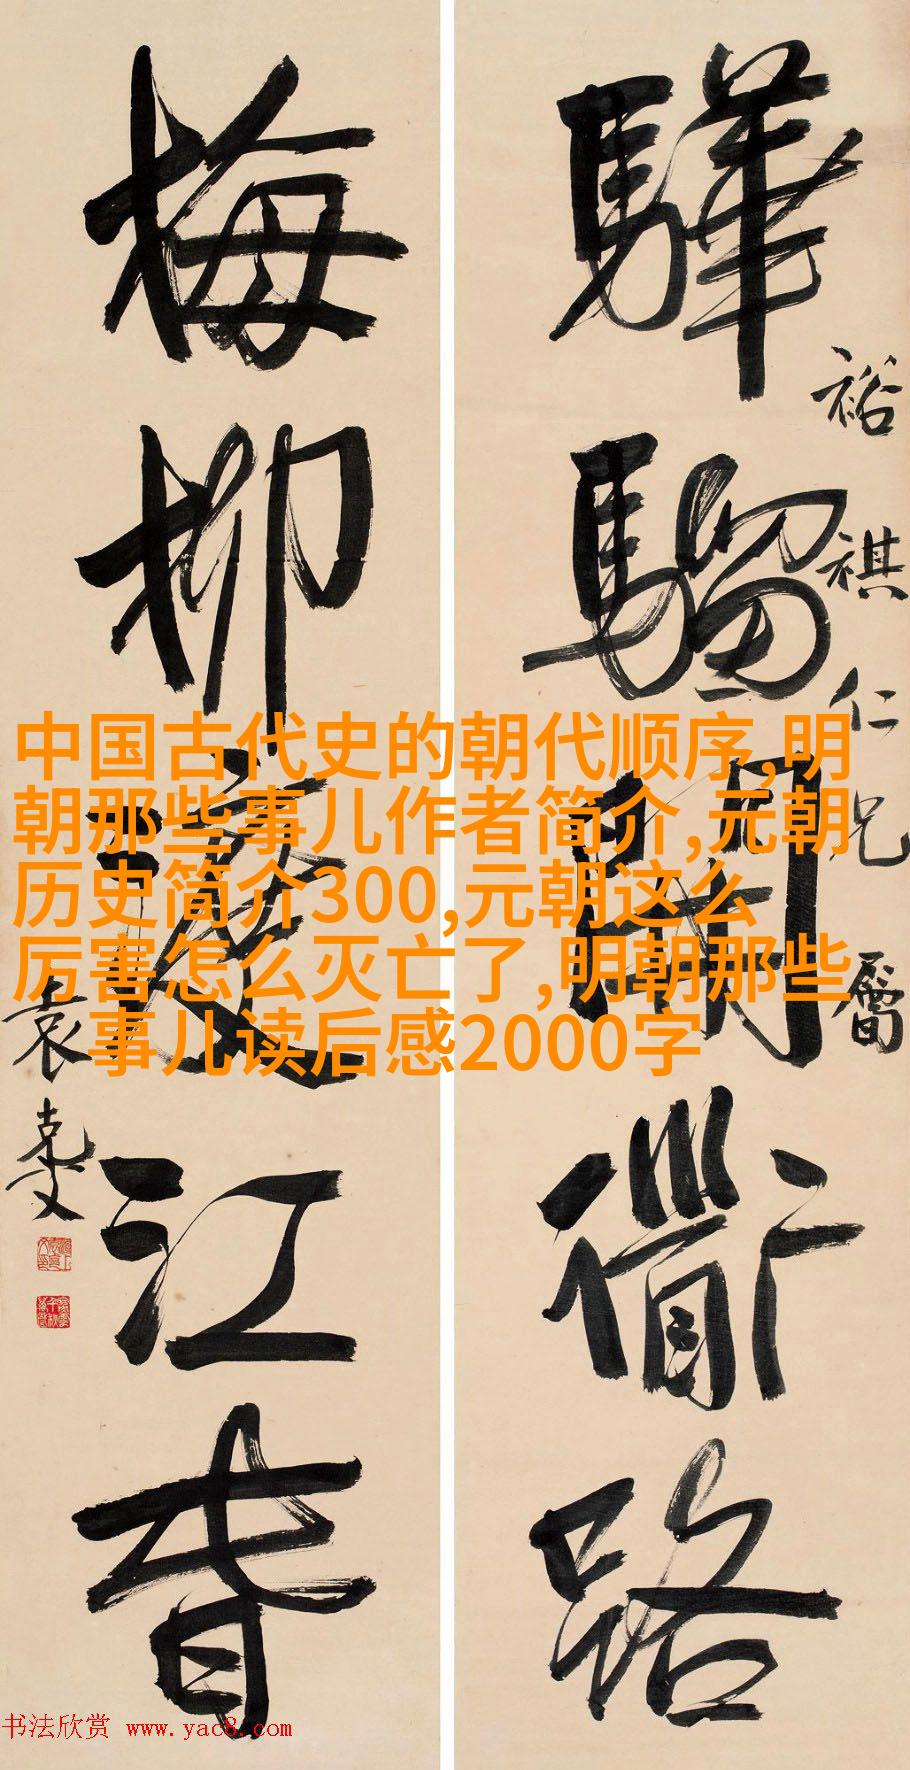 裕祺仁兄屬
驊騮開衜路
梅柳渡江春
袁克文
中国古代史的朝代顺序,明
朝那些事儿作者简介,元朝
历史简介300,元朝这么
厉害怎么灭亡了,明朝那些
事儿读后感2000字
书法欣赏 www.yac8.com